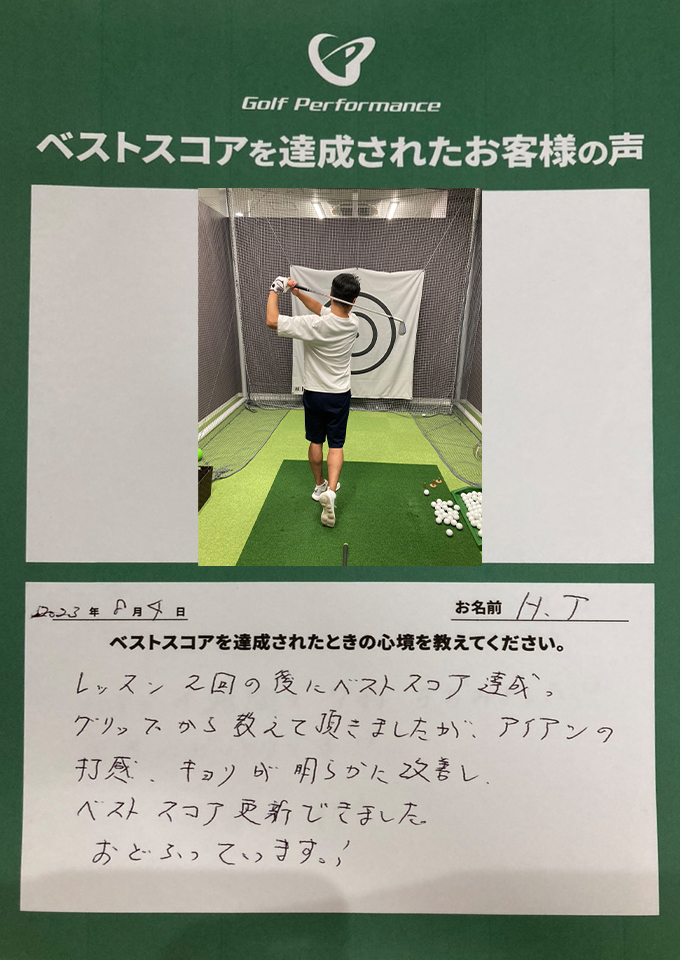 Golf Performance
ベストスコアを達成されたお客様の声
2023 年 8 月 4 日
お名前 H.T
ベストスコアを達成されたときの心境を教えてください。
レッスン 2回の後にベストスコア達成。
グリップから教えて頂きましたが、アイアンの
打感、キョリが明らかに改善し、
ベストスコア更新できました。
おどろいています。!